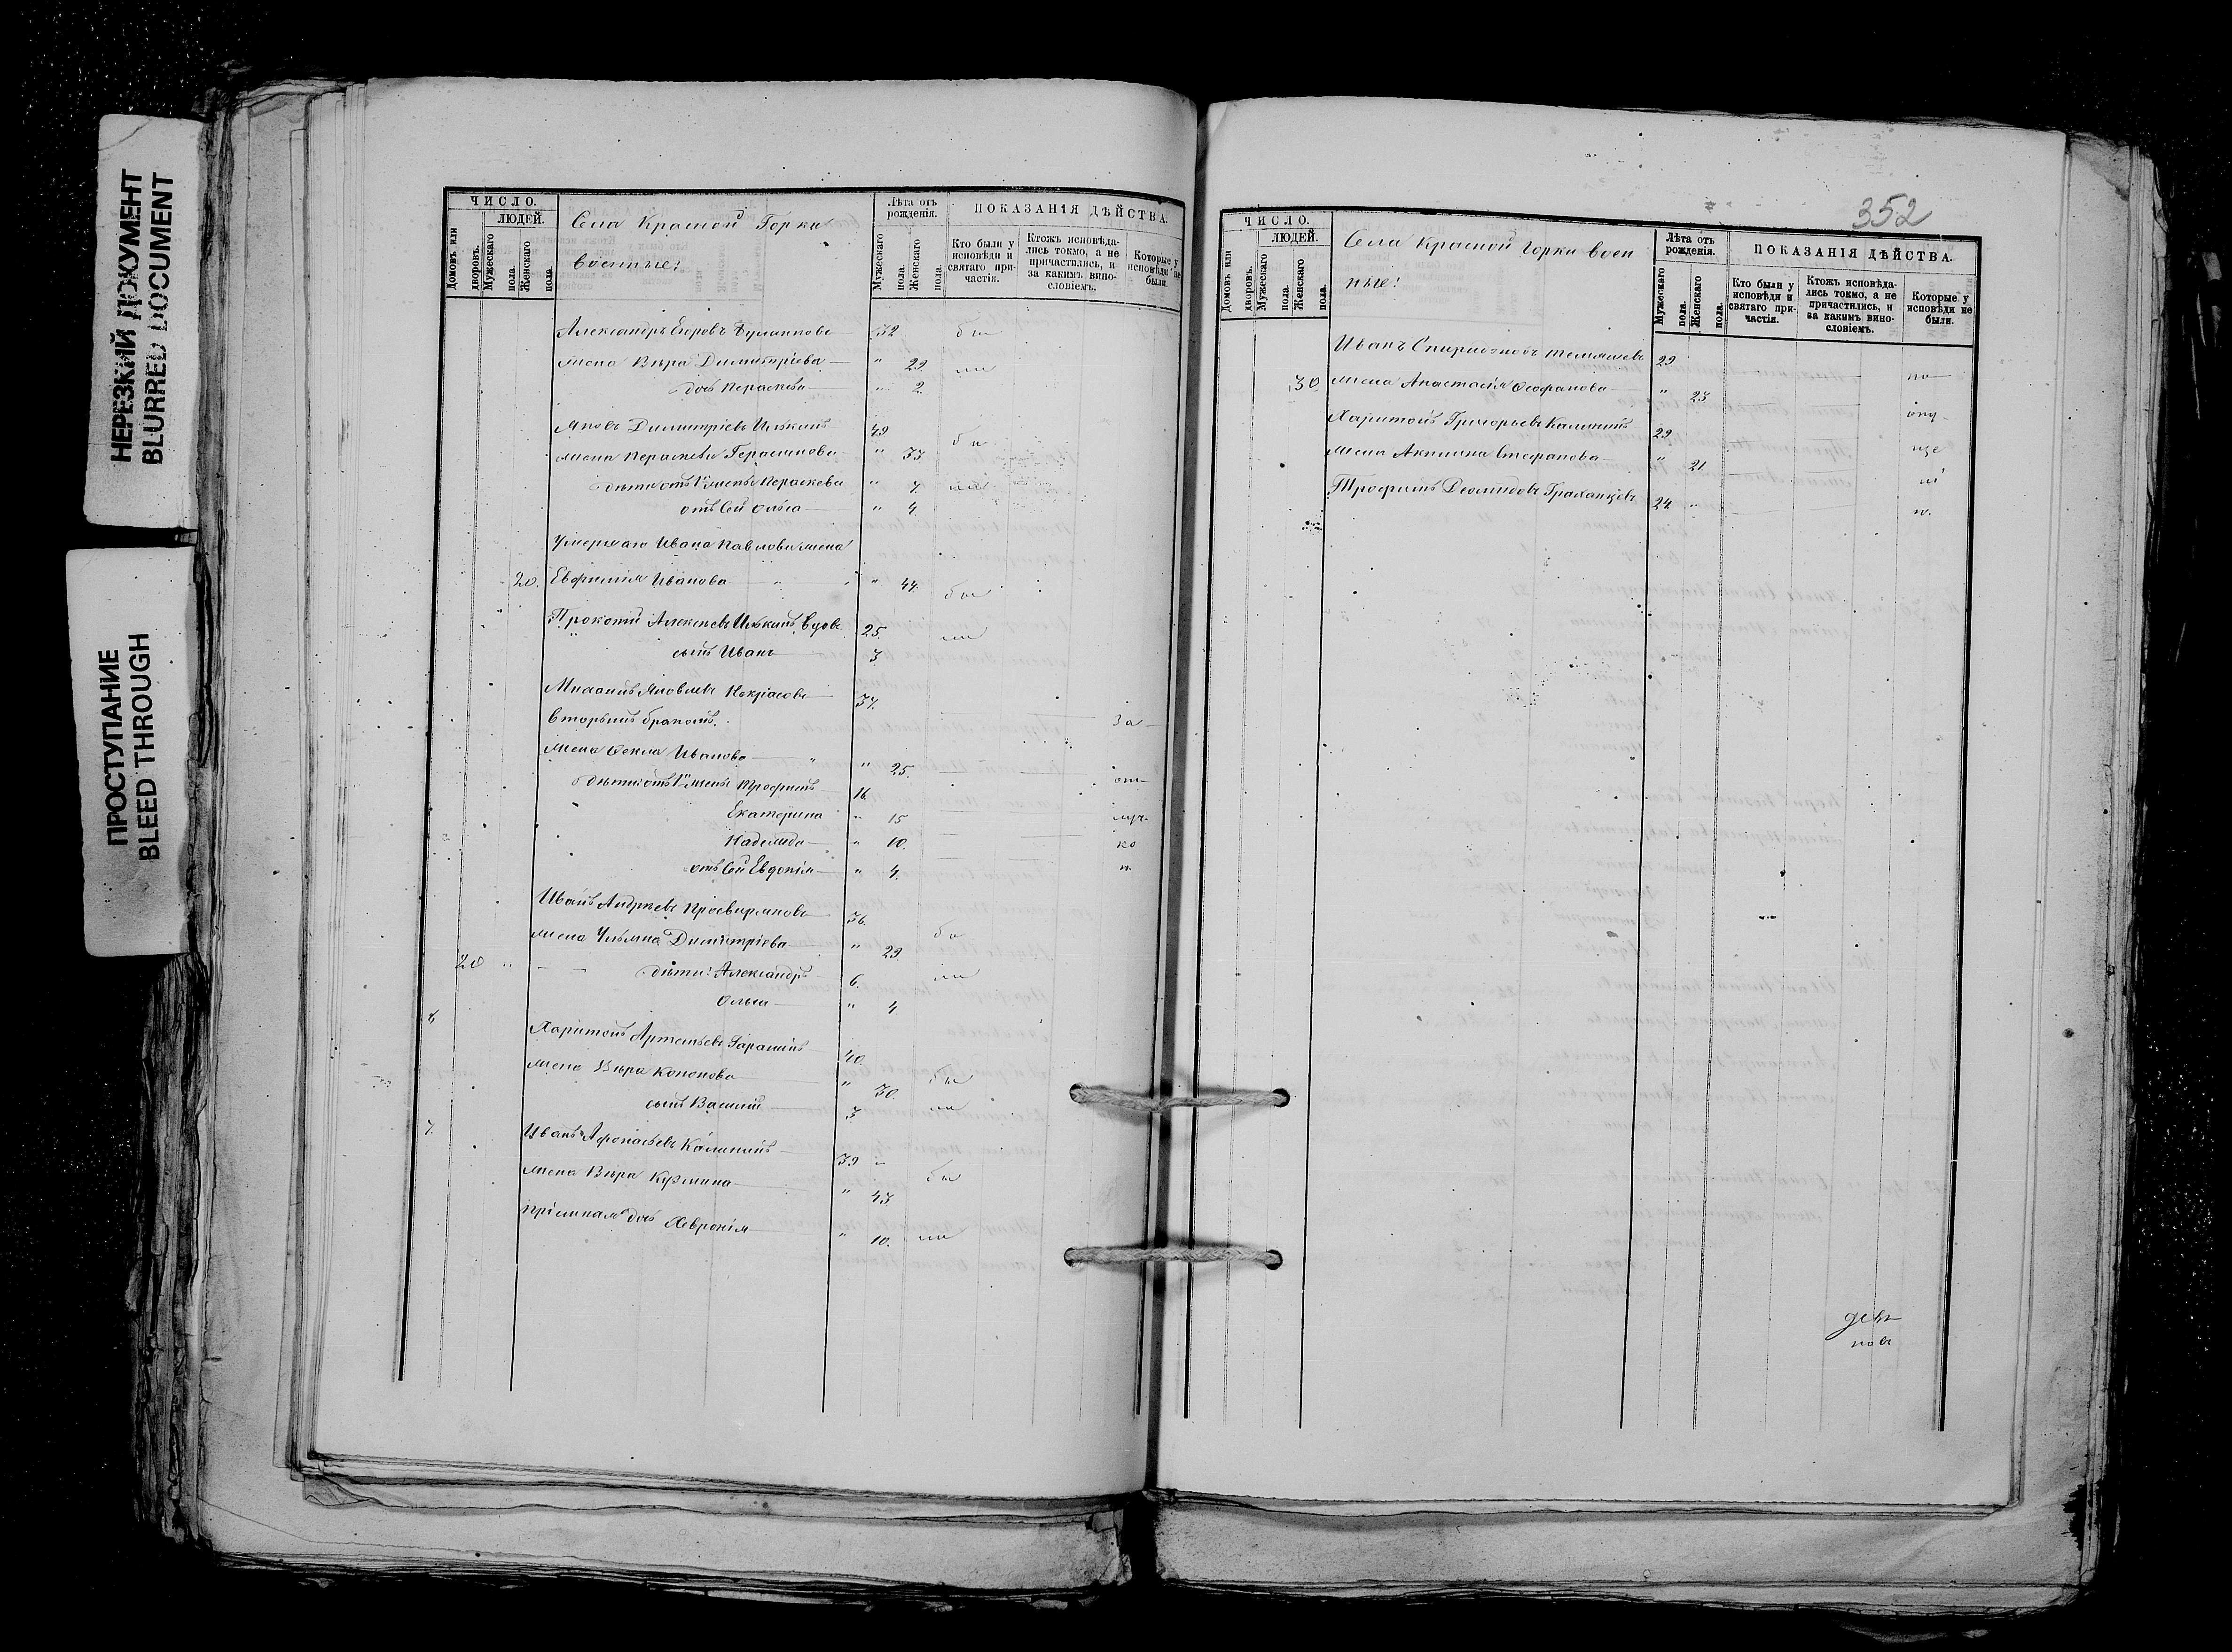 НЕРЕЗКИЙ ДОКУМЕНТ
BLURRED DOCUMENT
ПРОСТУПАНИЕ
BLEED THROUGH
ЧИСЛО.
ЛЮДЕЙ.
Домовъ или дворовъ.
Мужескаго пола.
Женскаго пола.
Села Красной Горки
военные:
Лѣта отъ рожденія.
Мужескаго пола.
Женскаго пола.
ПОКАЗАНІЯ ДѢЙСТВА.
Кто были у исповѣди и святаго причастія.
Ктожъ исповѣдались токмо, а не причастились, и за какимъ винословіемъ.
Которые у исповѣди не были.
Александръ Егоровъ 32 бы
жена Вѣра Димитріева " 29 ли
дочь Параскева " 2
Яковъ Димитріевъ Илькинъ 49 бы
жена Параскева Герасимова " 33
дѣти отъ 1й жены Параскева " 7 ли
отъ сей Ольга " 4
Умершаго Ивана Павлова жена
20. Евфимія Иванова " 44 бы
Прокопій Алексѣевъ Илькинъ вдовъ 25 ли
сынъ Иванъ 3
Яковлевъ Некрасовъ 37
вторымъ бракомъ. за
жена Ѳекла Иванова " 25. от
дѣти отъ 1й жены Трофимъ 16
Екатерина " 15 луч
Надежда " 10. ко
отъ сей Евдокія " 4. й
Иванъ Андреевъ 36. бы
жена Ульяна Димитріева " 29
20 " дѣти: Александръ 6. ли
Ольга " 4
6 Харитонъ Артемьевъ Гаранинъ 40.
жена Вѣра Кононова " 30. бы
сынъ Василій 3 ли
7. Иванъ Афонасьевъ Калининъ 39
жена Вѣра Кузмина " 43 бы
дочь Хевронія " 10. ли
352
ЧИСЛО.
ЛЮДЕЙ.
Домовъ или дворовъ.
Мужескаго пола.
Женскаго пола.
Села Красной Горки воен
ные:
Лѣта отъ рожденія.
Мужескаго пола.
Женскаго пола.
ПОКАЗАНІЯ ДѢЙСТВА.
Кто были у исповѣди и святаго причастія.
Ктожъ исповѣдались токмо, а не причастились, и за какимъ винословіемъ.
Которые у исповѣди не были.
Иванъ Спиридоновъ 29 по
30 жена Анастасія Ѳеофанова " 23
Харитонъ Григорьевъ Калининъ 29 ще
жена Акилина Стефанова " 21 ні
Трофимъ Деомидовъ 24 " и.